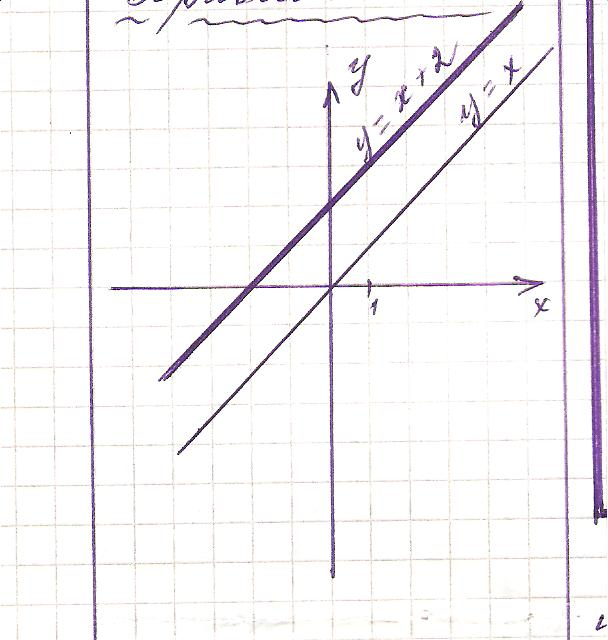 y
y = x + 2
y = x
1
x